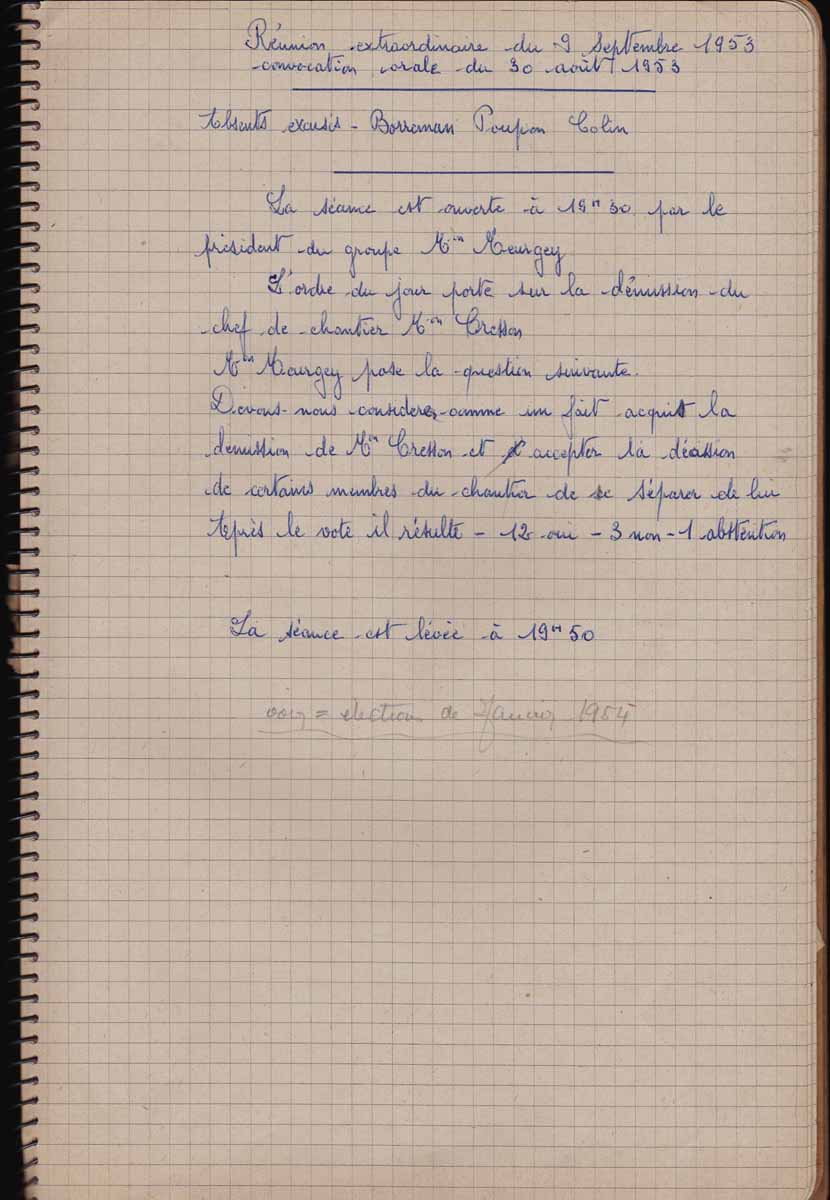 Réunion extraordinaire du 9 Septembre 1953
convocation orale du 30 août 1953
Absents excusés - Borreman Poupon Colin
La séance est ouverte à 19H 30 par le
président du groupe Mon Meurgey
L'ordre du jour porte sur la démission du
chef de chantier Mon Cresson
Mon Meurgey pose la question suivante.
Devons-nous considérer comme un fait acquit la
demission de Mon Cresson et accepter la décision
de certains membres du chantier de se séparer de lui
Après le vote il résulte - 12 oui - 3 non - 1 abstention
La séance est levée à 19H 50
voir = élections de Janvier 1954